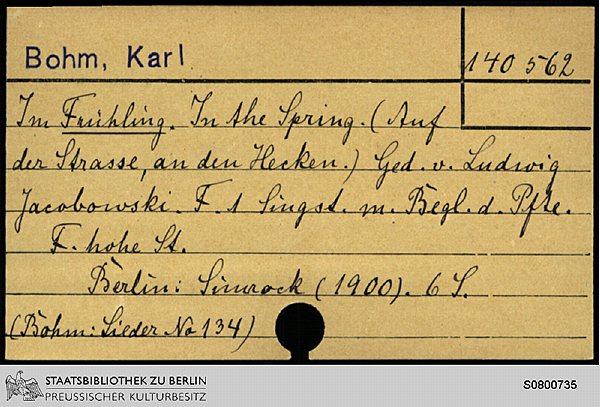 Bohm, Karl
140 562
Im Frühling. In the Spring. (Auf
der Strasse, an den Hecken.) Ged. v. Ludwig
Jacobowski. F. 1 Singst. m. Begl. d. Pfte.
F. hohe St.
Berlin: Simrock (1900). 6 S.
(Bohm: Lieder No 134)
STAATSBIBLIOTHEK ZU BERLIN
PREUSSISCHER KULTURBESITZ
S0800735